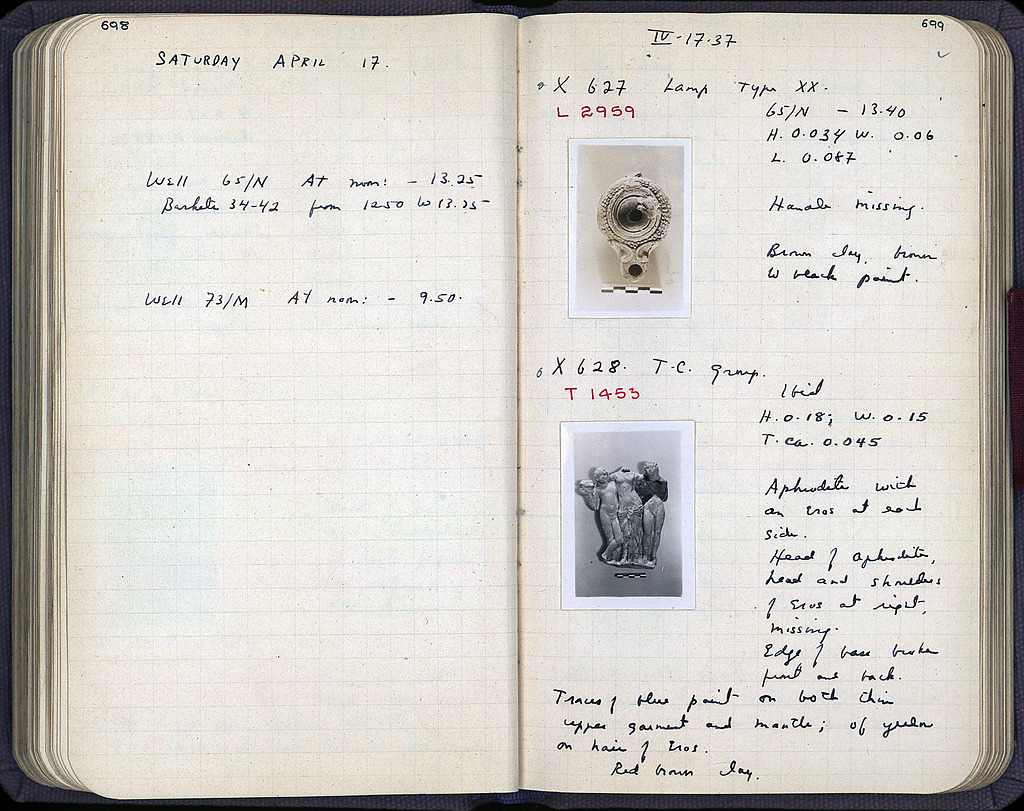 698
SATURDAY APRIL 17.
WELL 65/N At noon: - 13.25
Baskets 34-42 from 12.50 to 13.25
WELL 73/M At noon: - 9.50.
699
IV-17-37
X 627 Lamp Type XX.
L 2959
65/N - 13.40
H. 0.034 W. 0.06
L. 0.087
Handle missing.
Brown clay, brown
to black paint.
X 628. T.C. group.
T 1453
Ibid
H. 0.18; W. 0.15
T. ca. 0.045
Aphrodite with
an Eros at each
side.
Head of Aphrodite,
head and shoulders
of Eros at right,
missing.
Edge of base broken
front and back.
Traces of blue paint on both thin
upper garment and mantle; of yellow
on hair of Eros.
Red brown clay.